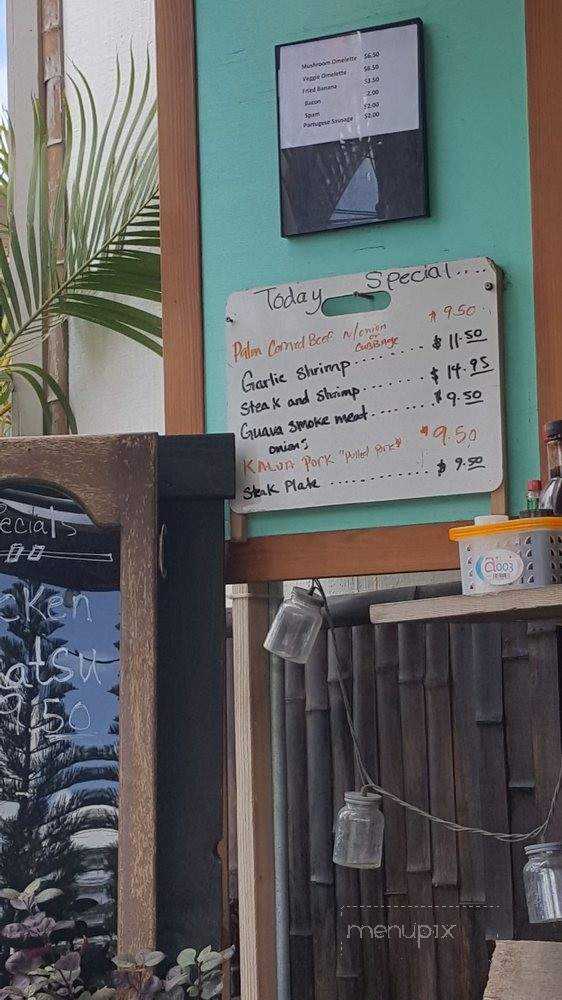 Mushroom Omelette $6.50
Veggie Omelette $6.50
Fried Banana $3.50
Bacon 2.00
Spam $2.00
Portugese Sausage $2.00
Today Special....
Palm Corned Beef w/onion $9.50
or
CUBBAGE
Garlic Shrimp........ $11.50
Steak and Shrimp....... $14.95
Guava Smoke meat....... $9.50
onions
KALUA PORK "Pulled Pork" $9.50
Steak Plate ........... $9.50
ecials
cken
atsu
9.50
a003
menupix